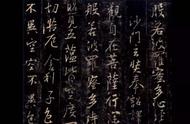 般若波羅蜜多心經
沙門玄奘奉詔譯
觀自在菩薩行深
般若波羅蜜多時
照見五蘊皆空度一
切苦厄舍利子色
不異空空不異色